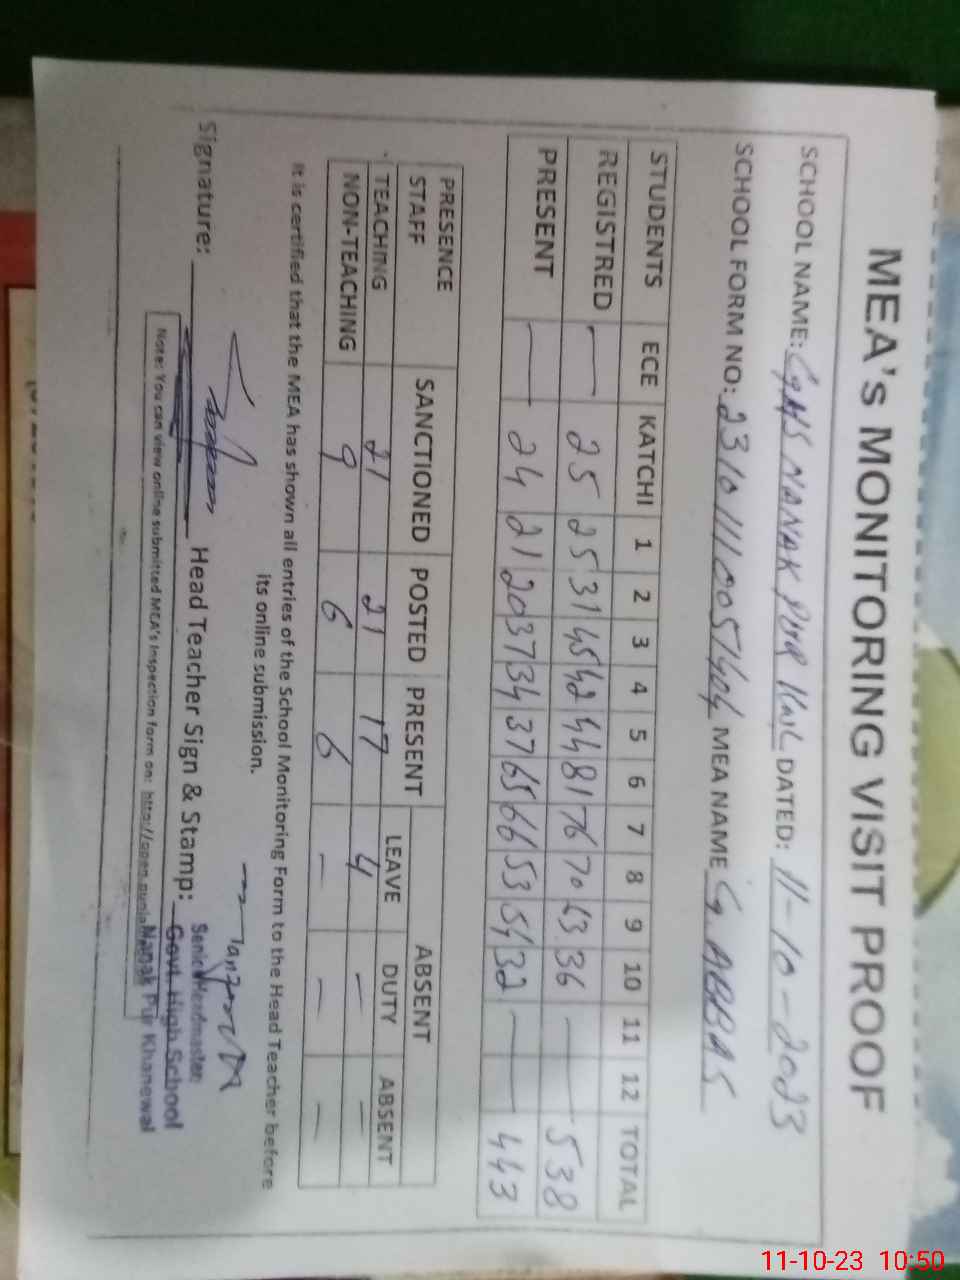 MEA's MONITORING VISIT PROOF
SCHOOL NAME: GHS NANAK PUR KWL DATED: 11-10-2023
SCHOOL FORM NO: 23101110057404 MEA NAME G. ABBAS
STUDENTS ECE KATCHI 1 2 3 4 5 6 7 8 9 10 11 12 TOTAL
REGISTRED — 25 25 31 45 42 44 81 76 70 63 36 — — 538
PRESENT — 24 21 20 37 34 37 65 66 53 54 32 — — 443
PRESENCE STAFF SANCTIONED POSTED PRESENT ABSENT
LEAVE DUTY ABSENT
TEACHING 21 21 17 4 — —
NON-TEACHING 9 6 6 — — —
It is certified that the MEA has shown all entries of the School Monitoring Form to the Head Teacher before
its online submission.
Signature: Head Teacher Sign & Stamp:
Senior Headmaster
Govt. High School
Nanak Pur Khanewal
Note: You can view online submitted MEA's Inspection form on: http://open.punjab
11-10-23 10:50